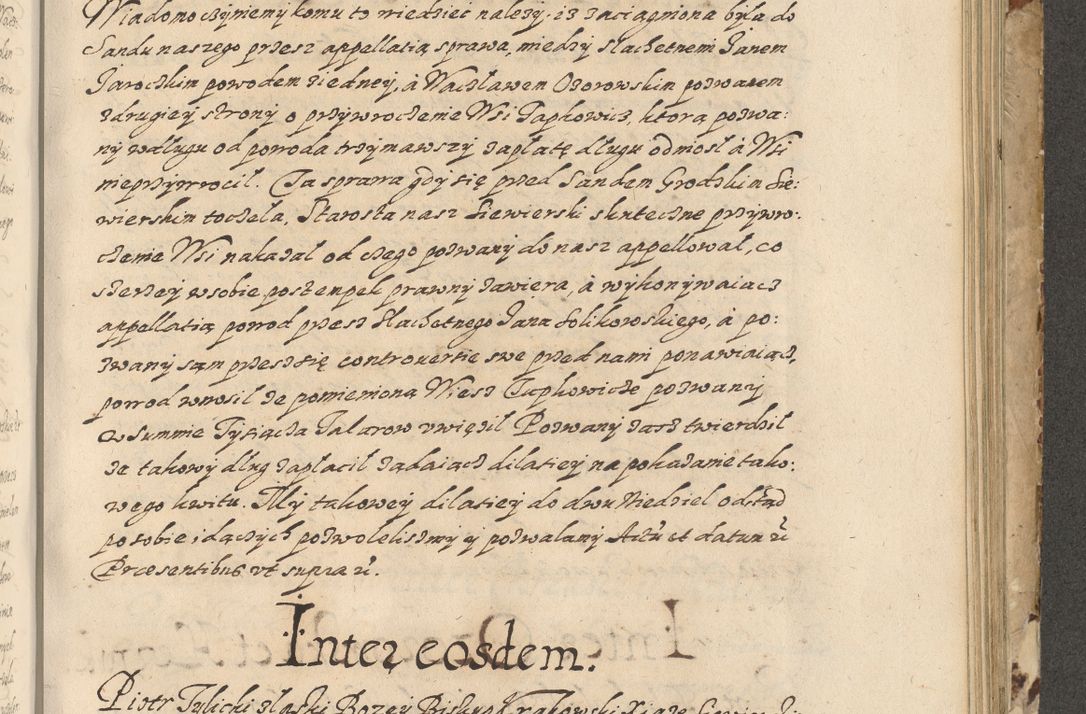 Wiadomo czyniemy komu to wiedzieć należy, iż zaciągniona była do
Sandu naszego przez appellatią sprawa, między slachetnem Janem
Jarockim powodem z iedney, á Wacławem Ozorowskim pozwanem
z drugiey strony o przywroczenie Wsi Tapkowicz, ktorą pozwa:
ny w długu od powoda trzymawszy zapłatę długu odniosł á Wsi
nieprzywrocił. Ta sprawa gdy się przed Sandem Grodzkim Sie:
wierskim toczeła, Starosta nasz Siewierski skuteczne przywro:
czenie Wsi nakazał od czego pozwany do nasz appellował, co
szerzey w sobie postempek prawny zawiera, á wykonywaiacz
appellatią powod przez slachetnego Jana Solikowskiego, á po:
zwany sam przesz się controuersie swe przed nami ponawiaiącz,
powod wnosił że pomienioną Wiesz Tapkowicze pozwany
w summie Tysiącza Talarow vwięził Pozwany zasz twierdził
że takowy dług zapłacił żądaiącz dilatiey na pokazanie tako:
wego kwitu. My takowey dilatiey do dwu Niedziel odstąd
po sobie idących pozwoleliszmy y pozwalamy Actũ et datum ut
Præsentibus vt supra ut.
Inter eosdem.
Piotr Tylicki złaski Bozey Biskup Krakowski Xiąże Siewier